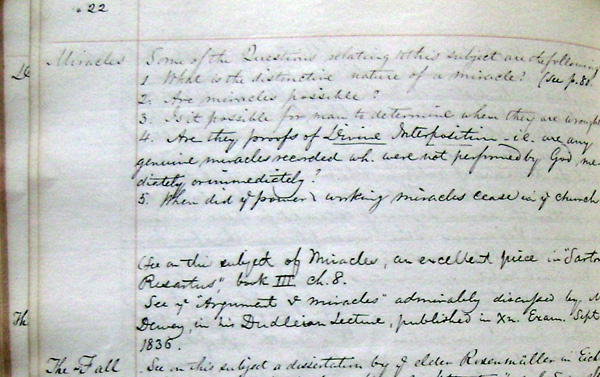 22
Miracles Some of the Questions relating to this subject are the following
1 What is the distinctive nature of a miracle? (see p. 85.
2. Are miracles possible?
3. Is it possible for man to determine when they are wrought
4. Are they proofs of Divine Interposition - i.e. are any
genuine miracles recorded wh. were not performed by God, me-
diately or immediately?
5. When did ye power working miracles cease in ye church
(See on this subject of Miracles, an excellent piece in "Sartor
Resartus", book III ch. 8.
See ye "Argument miracles" admirably discussed by
Dewey, in his Dudleian Lecture, published in Xn. Exam. Sept
1836.
The Fall See on this subject a dissertation by ye elder Rosenmüller in Eich